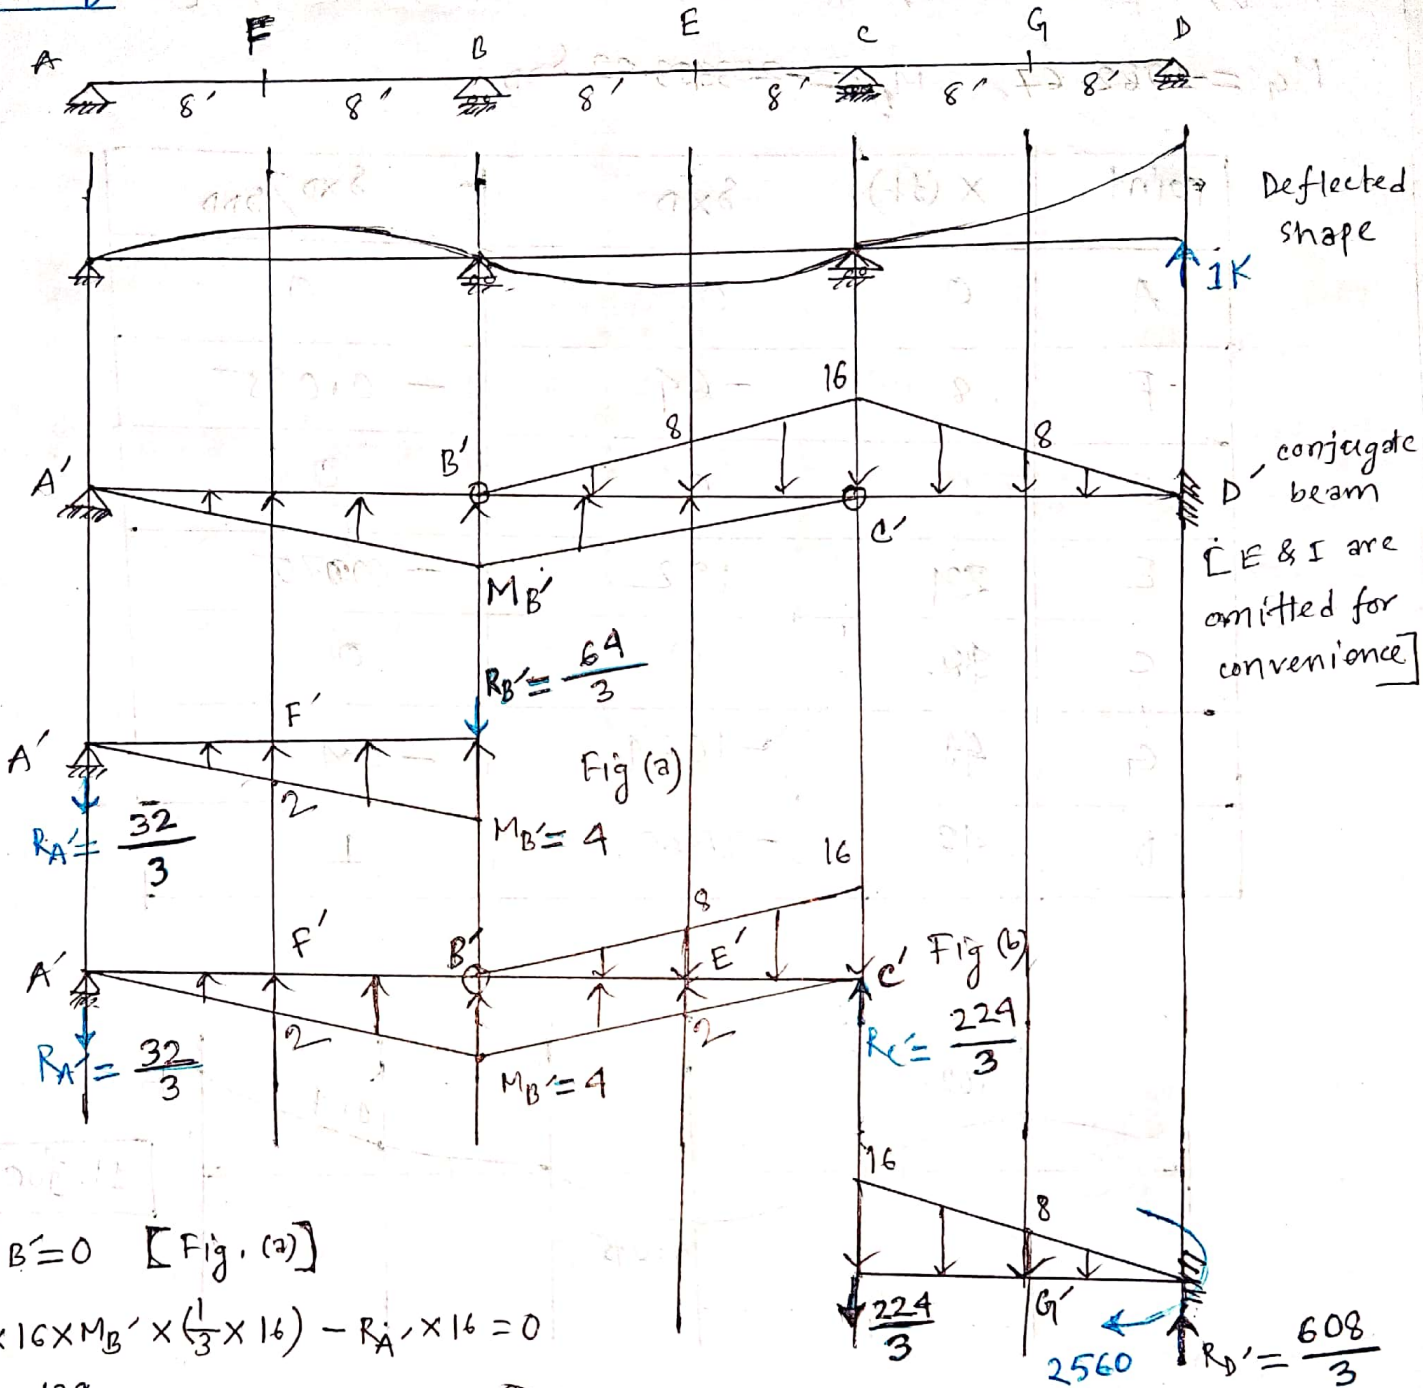 A F B E C G D
8' 8' 8' 8' 8' 8'
Deflected
shape
1K
16
8 8
A' B' C' D'
conjugate
beam
[E & I are
omitted for
convenience]
MB'
RB' = 64/3
A' F' Fig (a)
2
RA' = 32/3
MB' = 4
16
8
A' F' B' E' C' Fig (b)
2 2
RA' = 32/3
MB' = 4
RC' = 224/3
16
8
G'
224/3
2560
RD' = 608/3
B' = 0 [Fig. (a)]
×16×MB' × (1/3 × 16) – RA' × 16 = 0